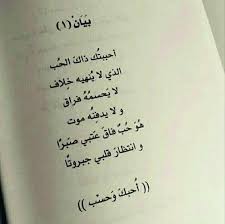 بَيَانْ (١)
أحببتُك ذاكَ الحُب
الذي لا يُنهيه خِلاف
لا يَحسمُهُ فراق
و لا يدفنُه موت
هُوَ حُبٌ فاقَ عَتبي صَبرًا
و انتظارَ قلبي جبروتًا
(( أُحبكَ وَحَسْب ))